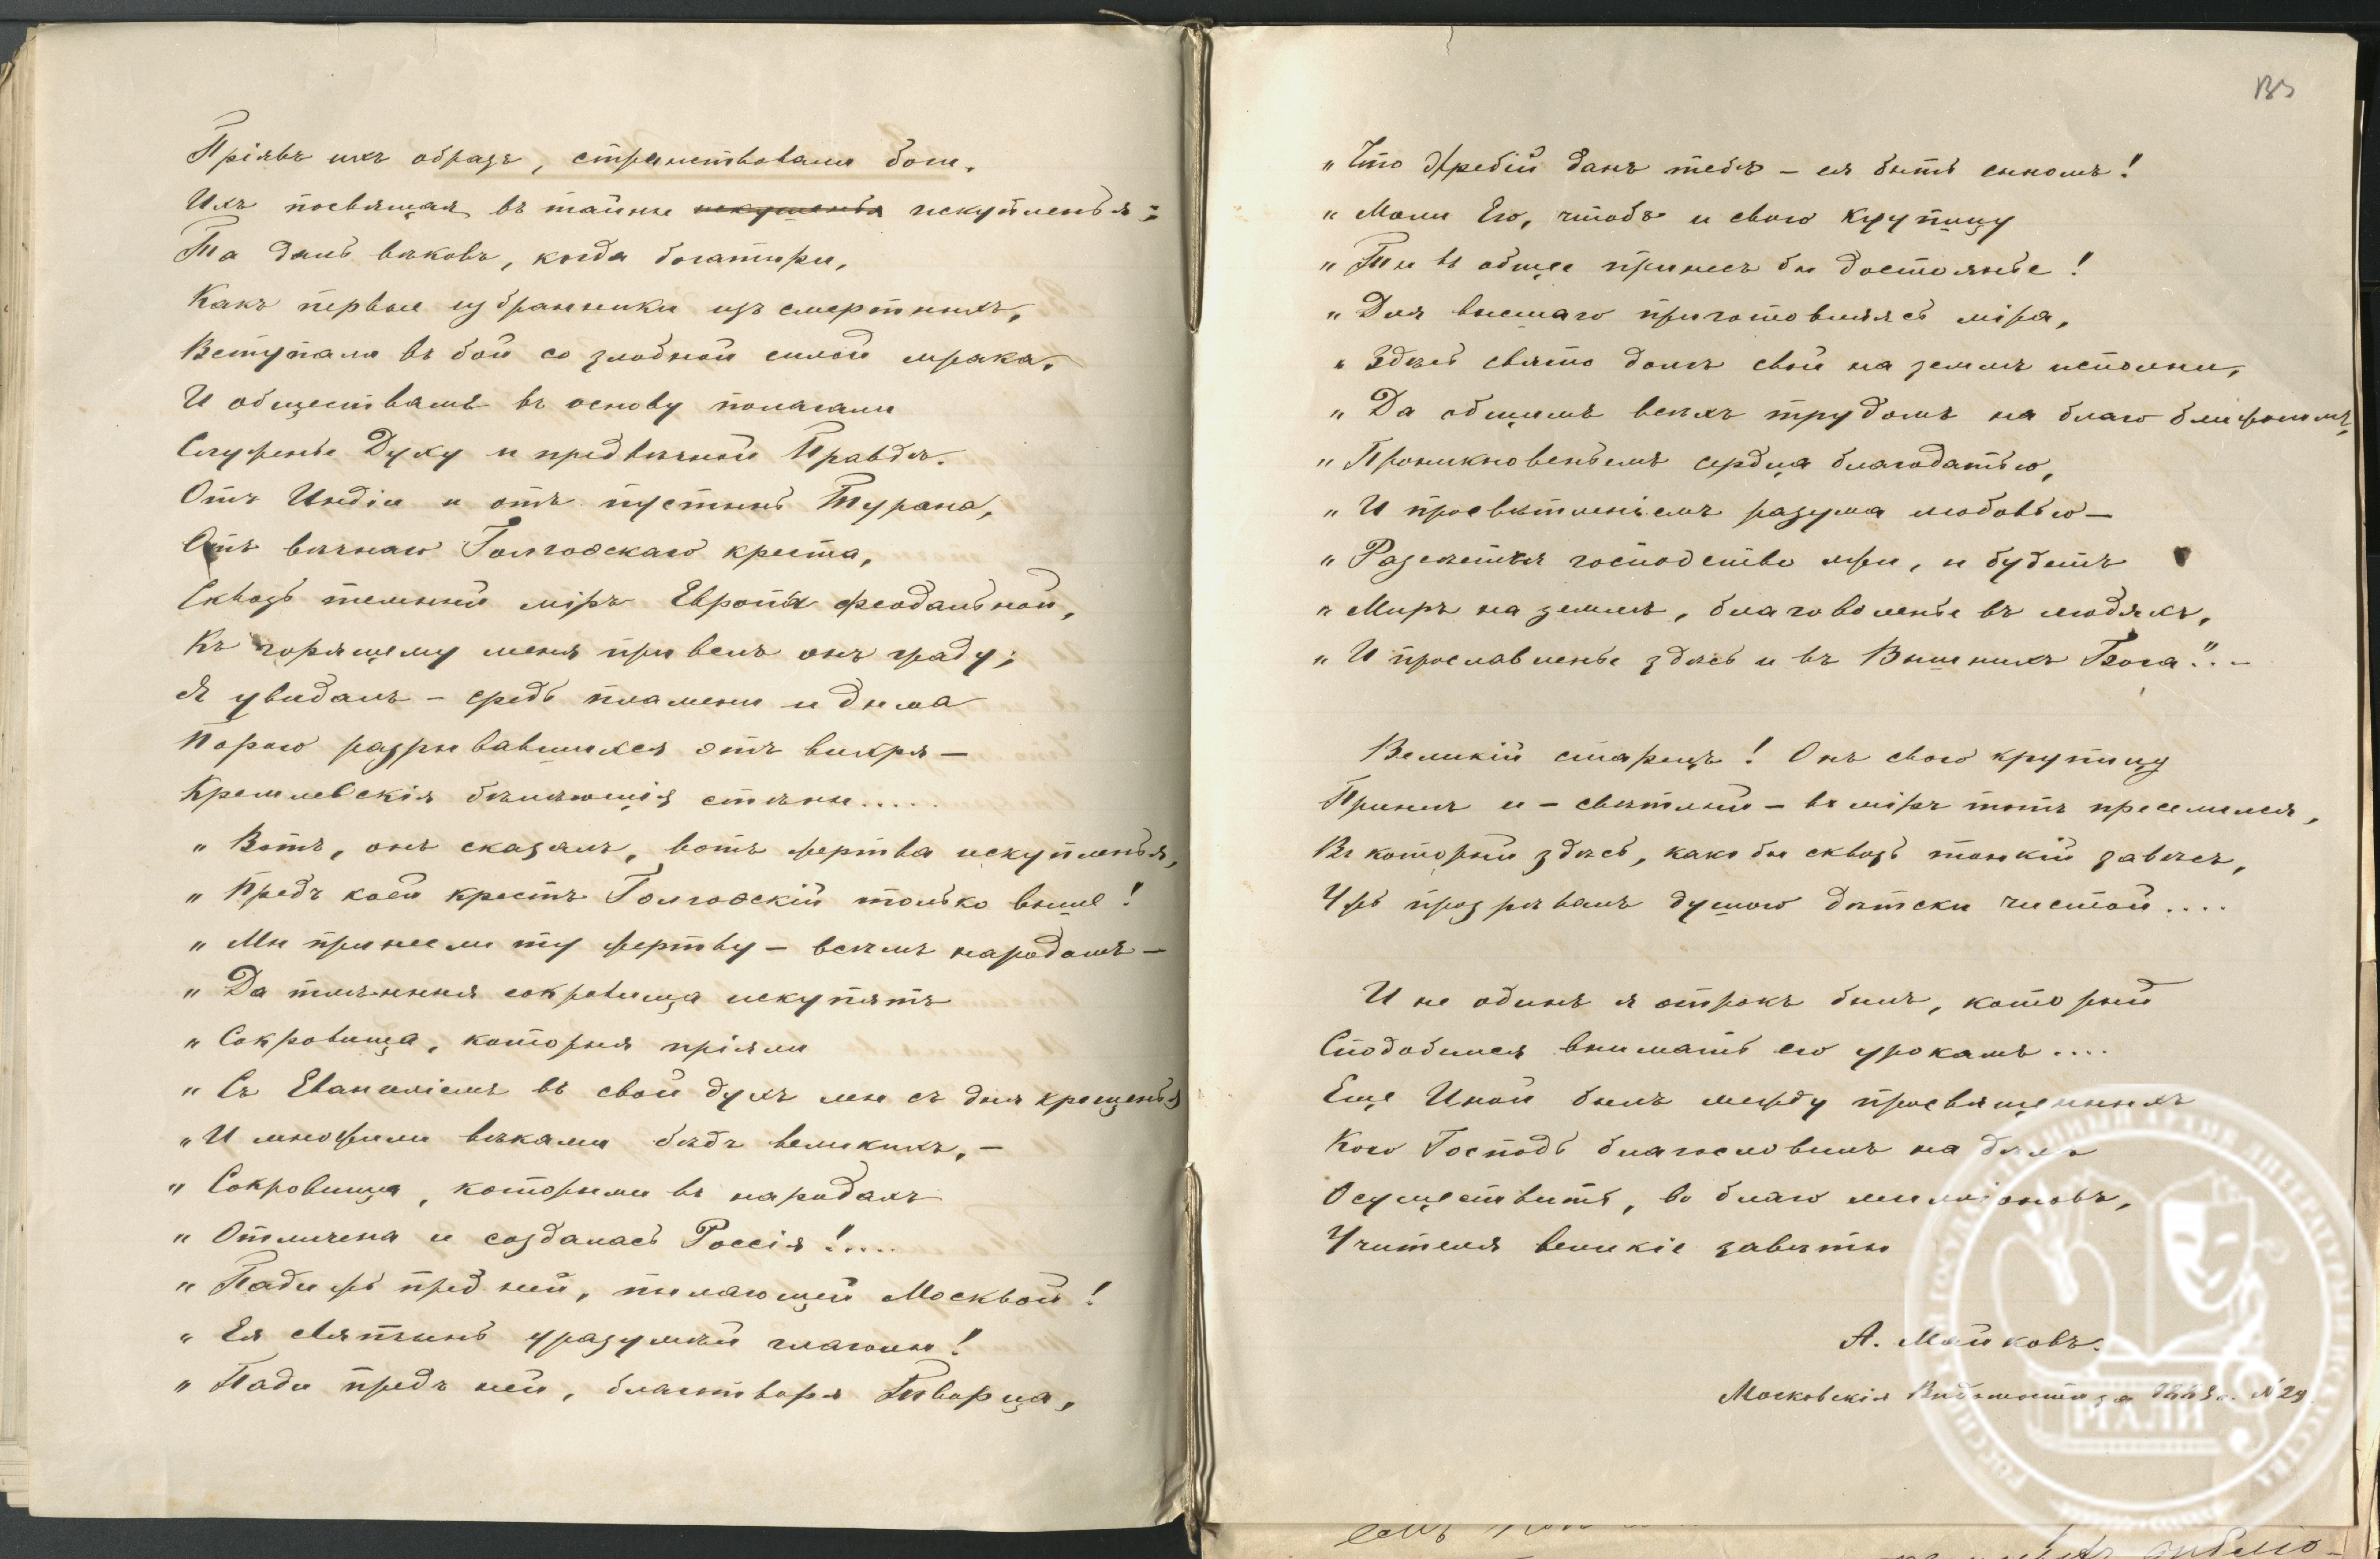 Пріявъ ихъ образъ, странствовали боги,
Ихъ посвящая въ тайны искушенья искупленья;
Та даль вѣковъ, когда богатыри,
Какъ первые избранники изъ смертныхъ,
Вступали въ бой со злобной силой мрака,
И обществамъ въ основу полагали
Служенье Духу и предвѣчной Правдѣ.
Отъ Индіи и отъ пустынь Турана,
Отъ вѣчнаго Голгоѳскаго креста,
Сквозь темный міръ Европы феодальной,
Къ горящему меня привелъ онъ граду;
Я увидалъ – средь пламени и дыма
Порою разрывавшихся отъ вихря –
Кремлевскія бѣлѣющія стѣны.....
„ Вотъ, онъ сказалъ, вотъ жертва искупленья,
„ Предъ коей крестъ Голгоѳскій только выше!
„ Мы принесли ту жертву – всѣмъ народамъ –
„ Да тлѣнныя сокровища искупятъ
„ Сокровища, которыя пріяли
„ Съ Евангеліемъ въ свой духъ мы съ дня крещенья
„ И множили вѣками бѣдъ великихъ, –
„ Сокровища, которыми въ народахъ
„ Отличена и создалась Россія!....
„ Пади жъ пред ней, пылающей Москвой!
„ Ея святынь уразумѣй глаголы!
„ Пади предъ ней, благотворя Творца,
„ Что жребій данъ тебѣ – ея быть сыномъ!
„ Моли Его, чтобъ и свою крупицу
„ Ты въ общее принесъ бы достоянье!
„ Для высшаго приготовляясь міра,
„ Здѣсь свято долгъ свой на землѣ исполни,
„ Да общимъ всѣхъ трудомъ на благо ближнимъ,
„ Проникновеньемъ сердца благодатью,
„ И просвѣтленіемъ разума любовью –
„ Разсѣется господство лжи, и будетъ
„ Миръ на землѣ, благоволенье въ людяхъ,
„ И прославленье здѣсь и въ Вышнихъ Бога". –
Великій старецъ! Онъ свою крупицу
Принесъ и – свѣтлый – въ міръ тотъ преселился,
Въ который здѣсь, какъ бы сквозь тонкій завѣсъ,
Ужъ прозрѣвалъ душою дѣтски чистой....
И не одинъ я отрокъ былъ, который
Сподобился внимать его урокамъ....
Еще Иной былъ между просвященныхъ
Кого Господь благословилъ на дѣлѣ
Осуществить, во благо милліоновъ,
Учителя великіе завѣты
А. Майковъ.
Московскія Вѣдомости за 1883 г. № 29
РГАЛИ